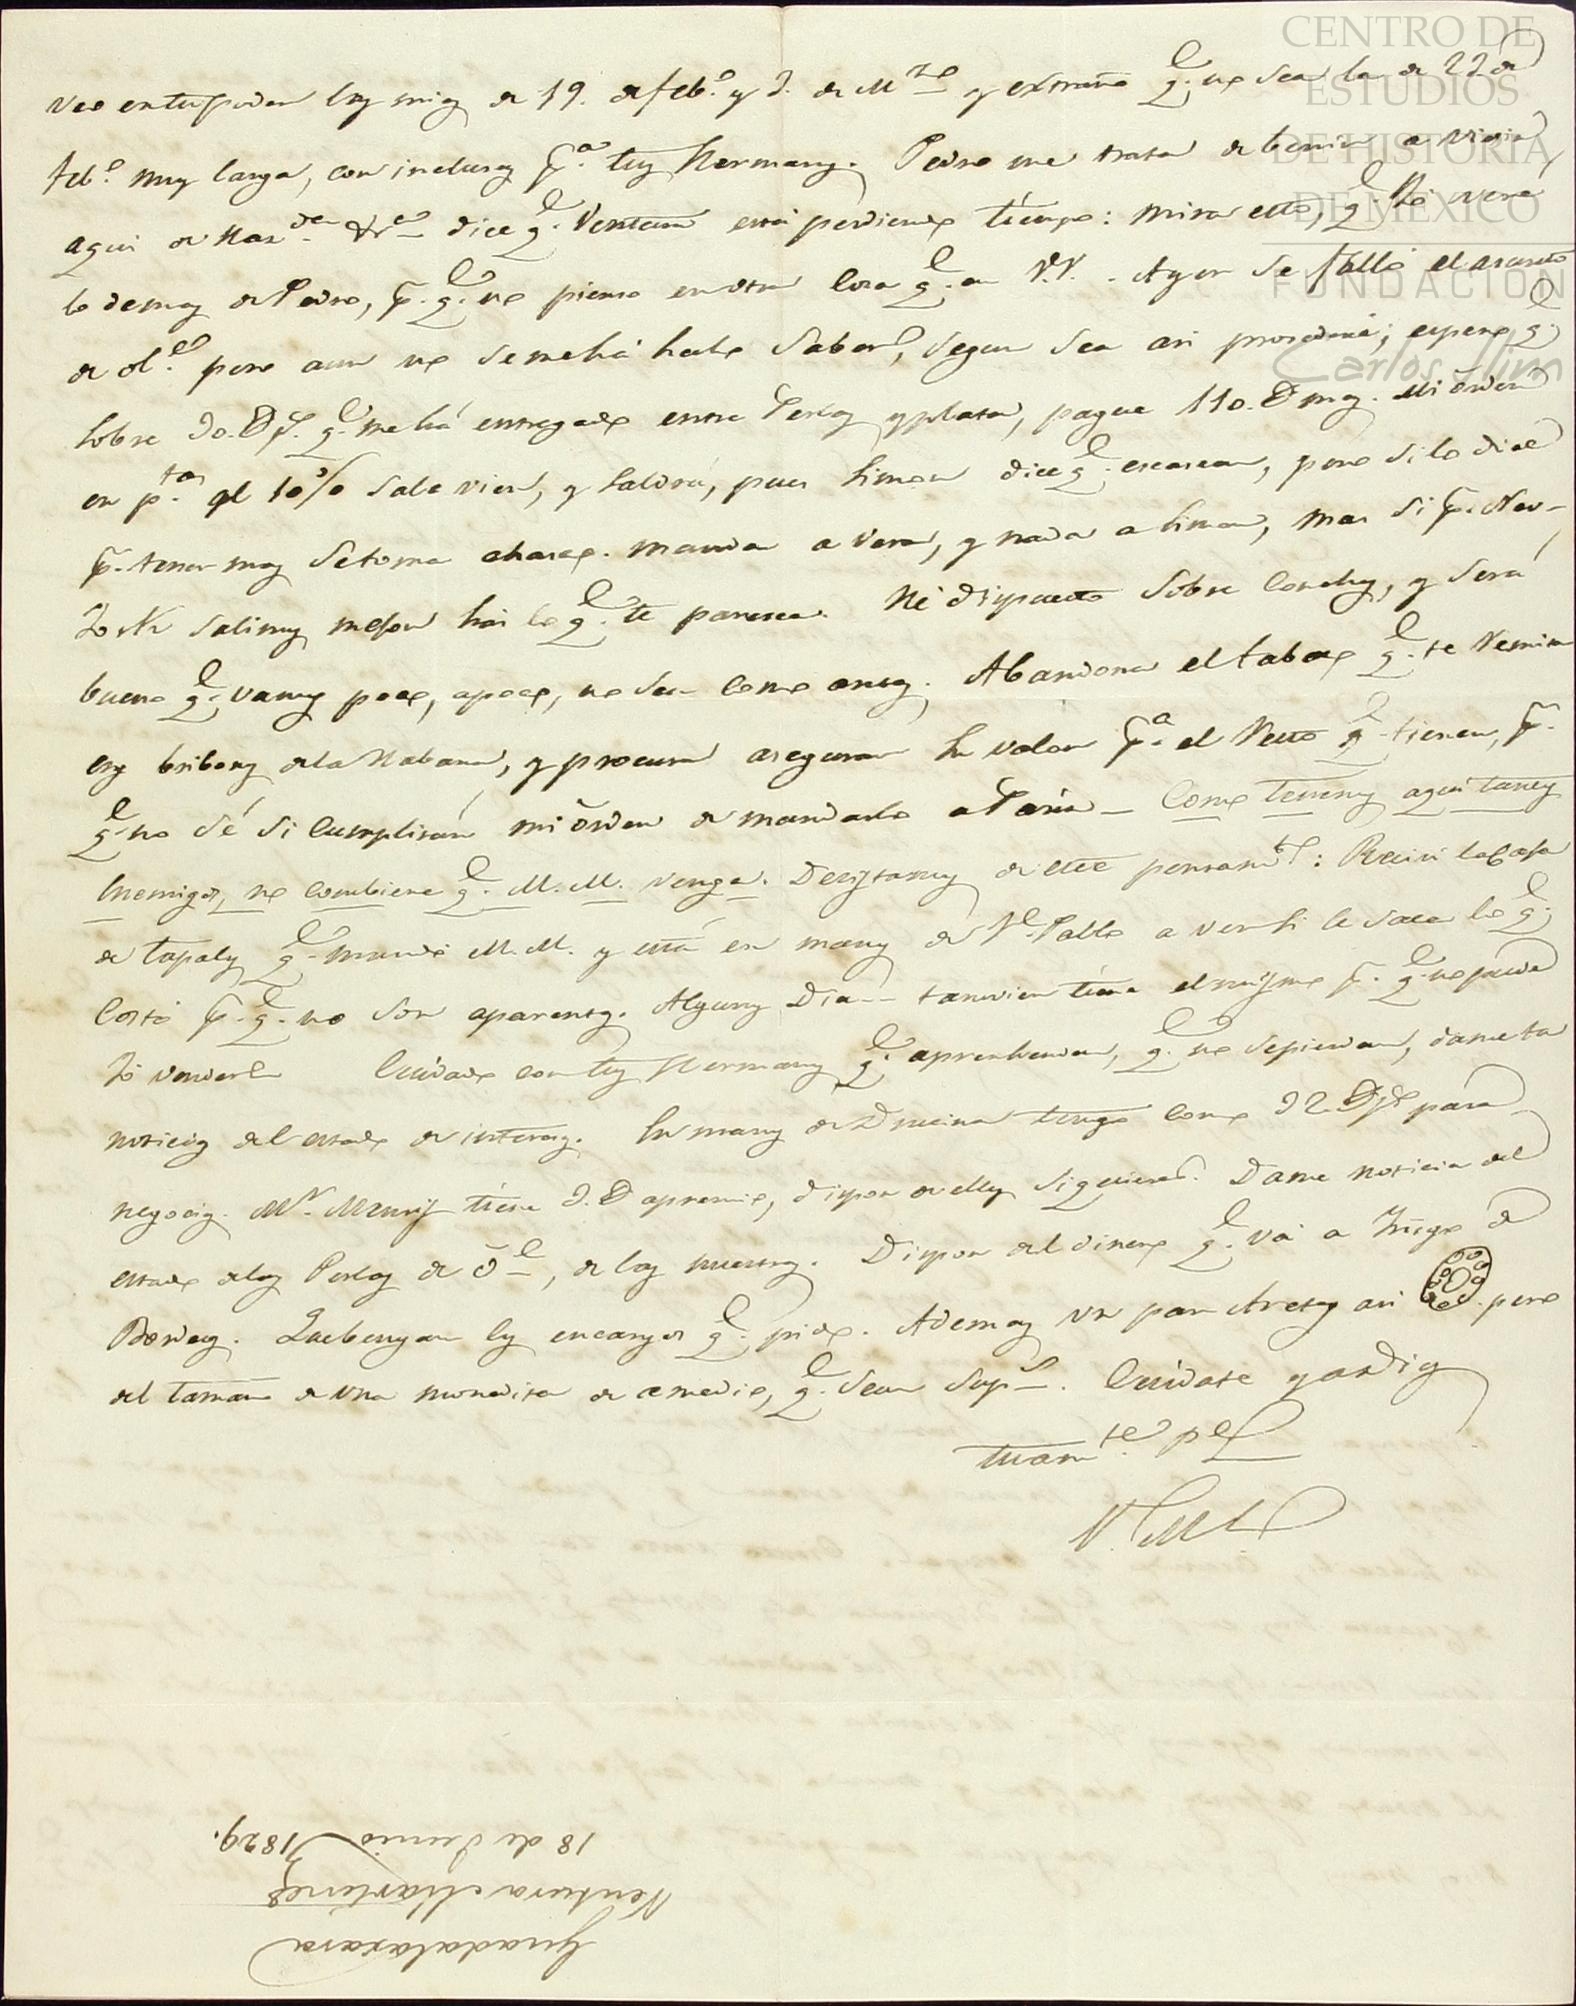 Veo en tu poder las mias de 19. de feb.º y 3. de M.zo y extraño q.e no sea la de 22 de
feb.º muy larga, con inclusas p.a tus Hermanos. Pedro me trata de benir a vivir
aqui dice q.e Ventura está perdiendo tiempo: mira esto, q.e Yo veré
lo demas de Pedro, p.r q.e no pienso en otra cosa q.e en V.V. Ayer se falló el asunto
de pero aun no se me há hecho saber, segun sea asi procederé; espero q.e
sobre 30. q.e me há entregado entre Perlas y plata, pague 110. mas. Mi órden
en p.tas al 10% sale vien, y saldrá, pues Simon dice q.e escasean, pero si lo dice
p.r tener mas se toma chasco. manda a Vera, y nada a Simon, mas si p.r New-
York salimos mejor hai lo q.e te paresca. Hé dispuesto sobre Conchas, y será
bueno q.e vamos poco, apoco, no sea como antes. Abandona el tabaco q.e te remitan
esos bribones de la Habana, y procura asegurar su valor p.a el resto q.e tienen, p.r
q.e no sé si cumplirán mi órden de mandarlo a Paris — Como tenemos aqui tantos
Enemigos, no combiene q.e M.M. venga. Desistamos de este pensam.to: Recivi la caja
de topalos q.e mandó M.M. y está en manos de Pablo a ver si le saca lo q.e
Costó p.r q.e no son aparentes. Algunos Dia— tanvien tiene el mismo p.r q.e no puedo
Yó venderlos Cuidado con tus Hermanos q.e aprenhendan, q.e no se pierdan, dame la
noticias del estado de interes. En manos de tengo como 32. para
negocios. Mr. tiene 3. apremio, dispon de ellos si quieres. Dame noticia del
estado de las Perlas de, de las nuestras. Dispon del dinero q.e vá a Iñigo de
Bordeos. Que bengan los encargos q.e pido. Ademas un par Aretes asi pero
del tamaño de una monedita de amedio, q.e sean sup.s. Cuidate y a Dios
tuam.te
V. M.
Guadalaxara
Ventura Martinez
18 de Junio 1829.
CENTRO DE
ESTUDIOS
DE HISTORIA
DE MÉXICO
FUNDACIÓN
Carlos Slim